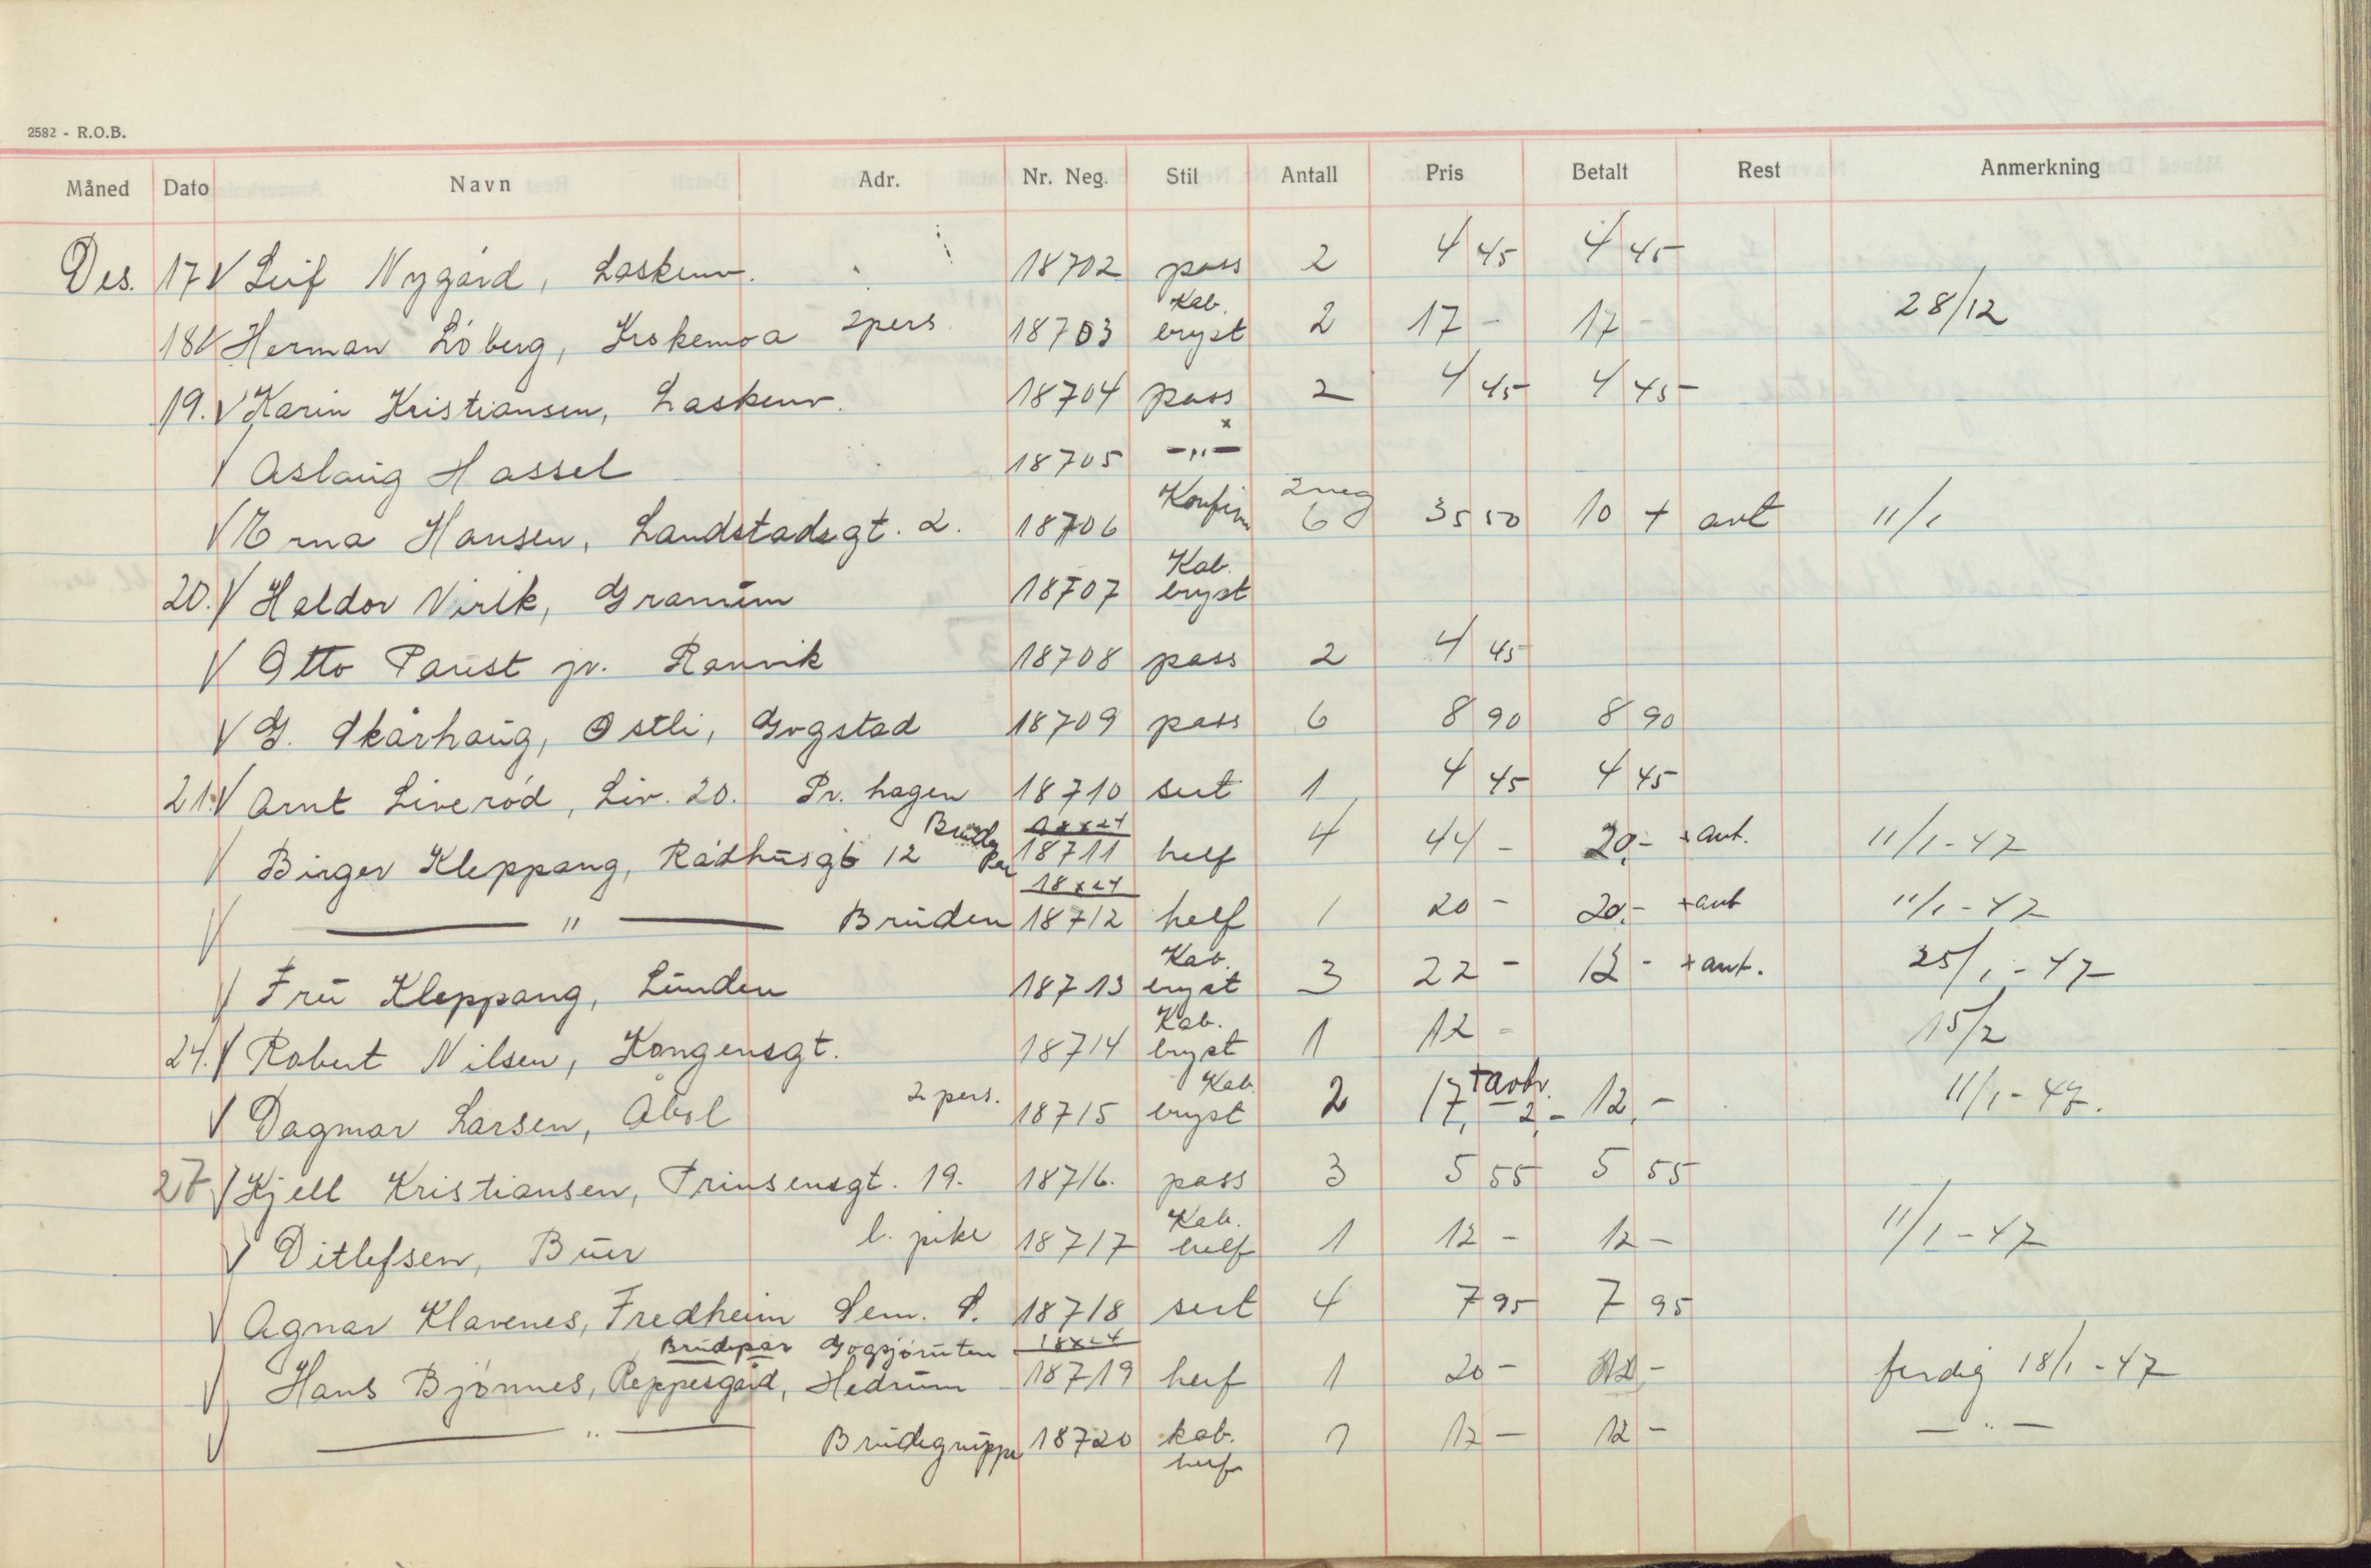 2582 - R.O.B.
Måned Dato Navn Adr. Nr. Neg. Stil Antall Pris Betalt Rest Anmerkning
Des. 17 V Leif Nygård, Laskenv. 18702 pass 2 4 45 4 45
18 V Herman Löberg, Krokemoa 2 pers. 18703 Kab. bryst 2 17 - 17 - 28/12
19. V Karin Kristiansen, Laskenv. 18704 pass 2 4 45 4 45
V Aslaug Hassel 18705 -"- x
V Erna Hansen, Landstadsgt. 2. 18706 Konfirm 2 neg 6 35 50 10 + avt 11/1
20. V Haldor Virik, Granum 18707 Kab. bryst
V Otto Paust jr. Ranvik 18708 pass 2 4 45
V G. Skårhaug, Østli, Gogstad 18709 pass 6 8 90 8 90
21. V Arnt Liveröd, Liv. 20. Pr. hagen 18710 sert 1 4 45 4 45
V Birger Kleppang, Rådhusgt 12 Brude Par 18x24 18711 helf 4 44 - 20,- + ant. 11/1-47
V — " — Bruden 18x24 18712 helf 1 20 - 20,- + ant 11/1-47
V Fru Kleppang, Lunden 18713 Kab. bryst 3 22 - 12 - + ant. 25/1-47
24. V Robert Nilsen, Kongensgt. 18714 Kab. bryst 1 12 - 15/2
V Dagmar Larsen, Åbol 2 pers. 18715 Kab. bryst 2 17,- 2,- 12,- 11/1-47.
27 V Kjell Kristiansen, Prinsensgt. 19. 18716. pass 3 5 55 5 55
V Ditlefsen, Buer l. pike 18717 Kab. helf 1 12 - 12 - 11/1-47
V Agnar Klavenes, Fredheim Sem. S. 18718 sert 4 7 95 7 95
Brudepar Gogsjøruten 18x24
V Hans Bjönnes, Reppesgård, Hedrum 18719 helf 1 20 - 12,- ferdig 18/1-47
V — " — Brudegruppe 18720 kab. helf 1 12 - 12 - — " —